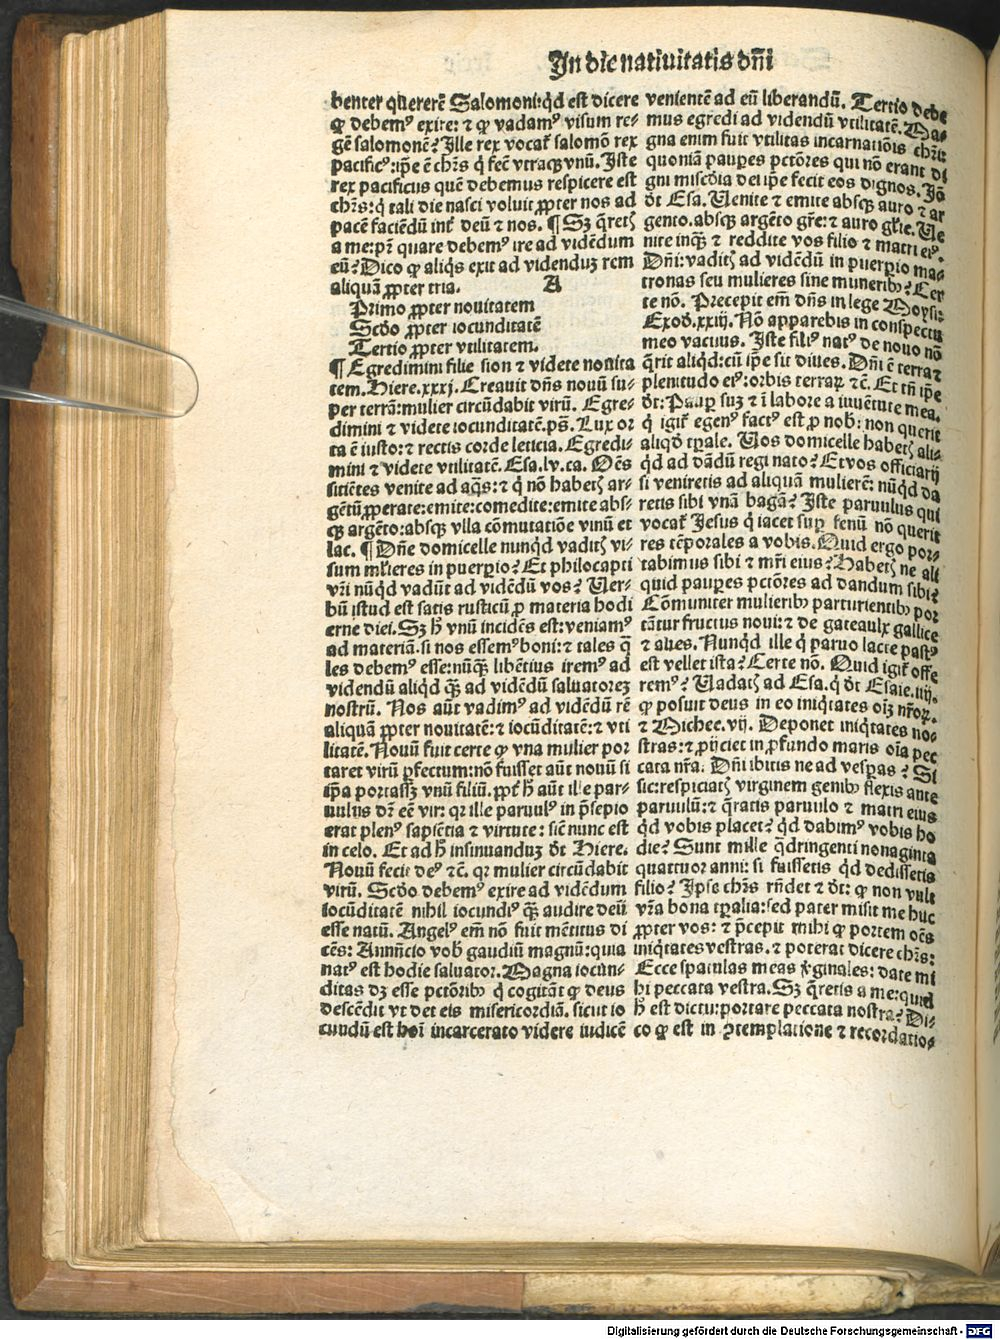 In die natiuitatis dn̄i
benter quererē Salomoni: qd̓ est dicere
ꝙ debemꝰ exire: ⁊ ꝙ vadamꝰ visum re-
gē salomonē? Ille rex vocat᷑ salomō rex
pacificꝰ: ip̄e ē chr̄s q̇ fec̄ vtraqꝫ vnū. Iste
rex pacificus quē debemus respicere est
chr̄s: q̇ tali die nasci voluit ꝓpter nos ad
pacē faciēdū int᷑ deū ⁊ nos. ¶ Sꝫ q̄retꝭ
a me: pr̄ quare debemꝰ ire ad vidēdum
eū? Dico ꝙ aliq̇s exit ad videnduꝫ rem
aliquā ꝓpter tria. A
Primo ꝓpter nouitatem
Scd̓o ꝓpter iocunditatē
Tertio ꝓpter vtilitatem.
¶ Egredimini filie sion ⁊ videte nouita
tem. Hiere.xxxj. Creauit dn̄s nouū su-
per terrā: mulier circūdabit virū. Egre-
dimini ⁊ videte iocunditatē. ps̄. Lux or
ta ē iusto: ⁊ rectis corde leticia. Egredi-
mini ⁊ videte vtilitatē. Esa.lv.ca. Om̄s
sitiētes venite ad aq̄s: ⁊ q̇ nō habetꝭ ar-
gētū ꝓperate: emite: comedite: emite abs-
qꝫ argēto: absqꝫ vlla cōmutatiōe vinū et
lac. ¶ Dn̄e domicelle nunqd̓ vaditꝭ vi-
sum ml̓ieres in puerꝑio? Et philocapti
vr̄i nūqd̓ vadūt ad vidēdū vos? Uer-
bū istud est satis rusticū ꝓ materia hodi
erne diei. Sꝫ h̓ vnū incidēs est: veniamꝰ
ad materiā. si nos essemꝰ boni: ⁊ tales q̄
les debemꝰ esse: nūq̄ꝫ libētius iremꝰ ad
videndū aliqd̓ q̄ꝫ ad vidēdū saluatoreꝫ
nostrū. Nos aūt vadimꝰ ad vidēdū rē
aliquā ꝓpter nouitatē: ⁊ iocūditatē: ⁊ vti
litatē. Nouū fuit certe ꝙ vna mulier por
taret virū ꝑfectum: nō fuisset aūt nouū si
ip̄a portassꝫ vnū filiū. ꝓt̓ h̓ aūt ille par-
uulus dr̄ eē vir: qr ille paruulꝰ in p̄sepio
erat plenꝰ sapiētia ⁊ virtute: sic̄ nunc est
in celo. Et ad h̓ insinuanduꝫ d̓t Hiere.
Nouū fecit deꝰ ⁊c̄. qr mulier circūdabit
virū. Scd̓o debemꝰ exire ad vidēdum
iocūditatē nihil iocundiꝰ q̄ꝫ audire deū
esse natū. Angelꝰ em̄ nō fuit mētitus di
cēs: Annūcio vob̓ gaudiū magnū: quia
natꝰ est hodie saluator. Magna iocun-
ditas dꝫ esse pctōribꝰ q̇ cogitāt ꝙ deus
descēdit vt det eis misericordiā. sicut io
cundū est hoī incarcerato videre iudicē
venientē ad eū liberandū. Tertio debe
mus egredi ad videndū vtilitatē. Ma-
gna enim fuit vtilitas incarnatiōis chr̄i:
quoniā pauꝑes pctōres qui nō erant di
gni misc̄dia dei ip̄e fecit eos dignos. Iō
d̓t Esa. Uenite ⁊ emite absqꝫ auro ⁊ ar
gento. absqꝫ argēto gr̄e: ⁊ auro gl̓ie. Ue
nite inq̄ꝫ ⁊ reddite vos filio ⁊ matri eiꝰ.
Dn̄i: vaditꝭ ad vidēdū in puerꝑio ma-
tronas seu mulieres sine muneribꝰ? Cer
te nō. Precepit em̄ dn̄s in lege Moysi:
Exod̓.xxiij. Nō apparebis in conspectu
meo vacuus. Iste filiꝰ natꝰ de nouo nō
q̄rit aliqd̓: cū ip̄e sit diues. Dn̄i ē terra ⁊
plenitudo eiꝰ: orbis terraꝝ ⁊c̄. Et tn̄ ip̄e
d̓t: Pauꝑ suꝫ ⁊ ī labore a iuuētute mea.
q̇ igit᷑ egenꝰ factꝰ est ꝓ nob̓: non querit
aliqd̓ tꝑale. Uos domicelle habetꝭ ali-
qd̓ ad dādū regi nato? Et vos officiarij
si veniretis ad aliquā mulierē: nūqd̓ da
retis sibi vnā bagā? Iste paruulus qui
vocat᷑ Jesus q̇ iacet suꝑ fenū nō querit
res tēporales a vobis. Quid ergo por-
tabimus sibi ⁊ mr̄i eius? Habetꝭ ne ali
quid pauꝑes pctōres ad dandum sibi?
Cōmuniter mulieribꝰ parturientibꝰ por
tātur fructus noui: ⁊ de gateaulx gallice
⁊ aues. Nunqd̓ ille q̇ paruo lacte pastꝰ
est vellet ista? Certe nō. Quid igit᷑ offe
remꝰ? Uadatꝭ ad Esa. q̇ d̓t Esaie.iiij.
ꝙ posuit deus in eo iniq̇tates oīꝫ nr̄oꝝ.
⁊ Michee.vij. Deponet iniq̇tates no-
stras: ⁊ ꝓijciet in ꝓfundo maris oīa pec
cata nr̄a. Dn̄i ibitis ne ad vesꝑas? Si
sic: respiciatꝭ virginem genibꝰ flexis ante
paruulū: ⁊ q̄ratis paruulo ⁊ matri eius
qd̓ vobis placet? qd̓ dabimꝰ vobis ho
die? Sunt mille q̄dringenti nonaginta
quattuor anni: si fuissetis qd̓ dedissetis
filio? Ipse chr̄s rn̄det ⁊ d̓t: ꝙ non vult
vr̄a bona tꝑalia: sed pater misit me huc
ꝓpter vos: ⁊ p̄cepit mihi ꝙ portem oēs
iniq̇tates vestras. ⁊ poterat dicere chr̄s:
Ecce spatulas meas v̓ginales: date mi
hi peccata vestra. Sꝫ q̄retis a me: quid
h̓ est dictu: portare peccata nostra? Di-
co ꝙ est in ꝯtemplatione ⁊ recordatio-
Digitalisierung gefördert durch die Deutsche Forschungsgemeinschaft - DFG